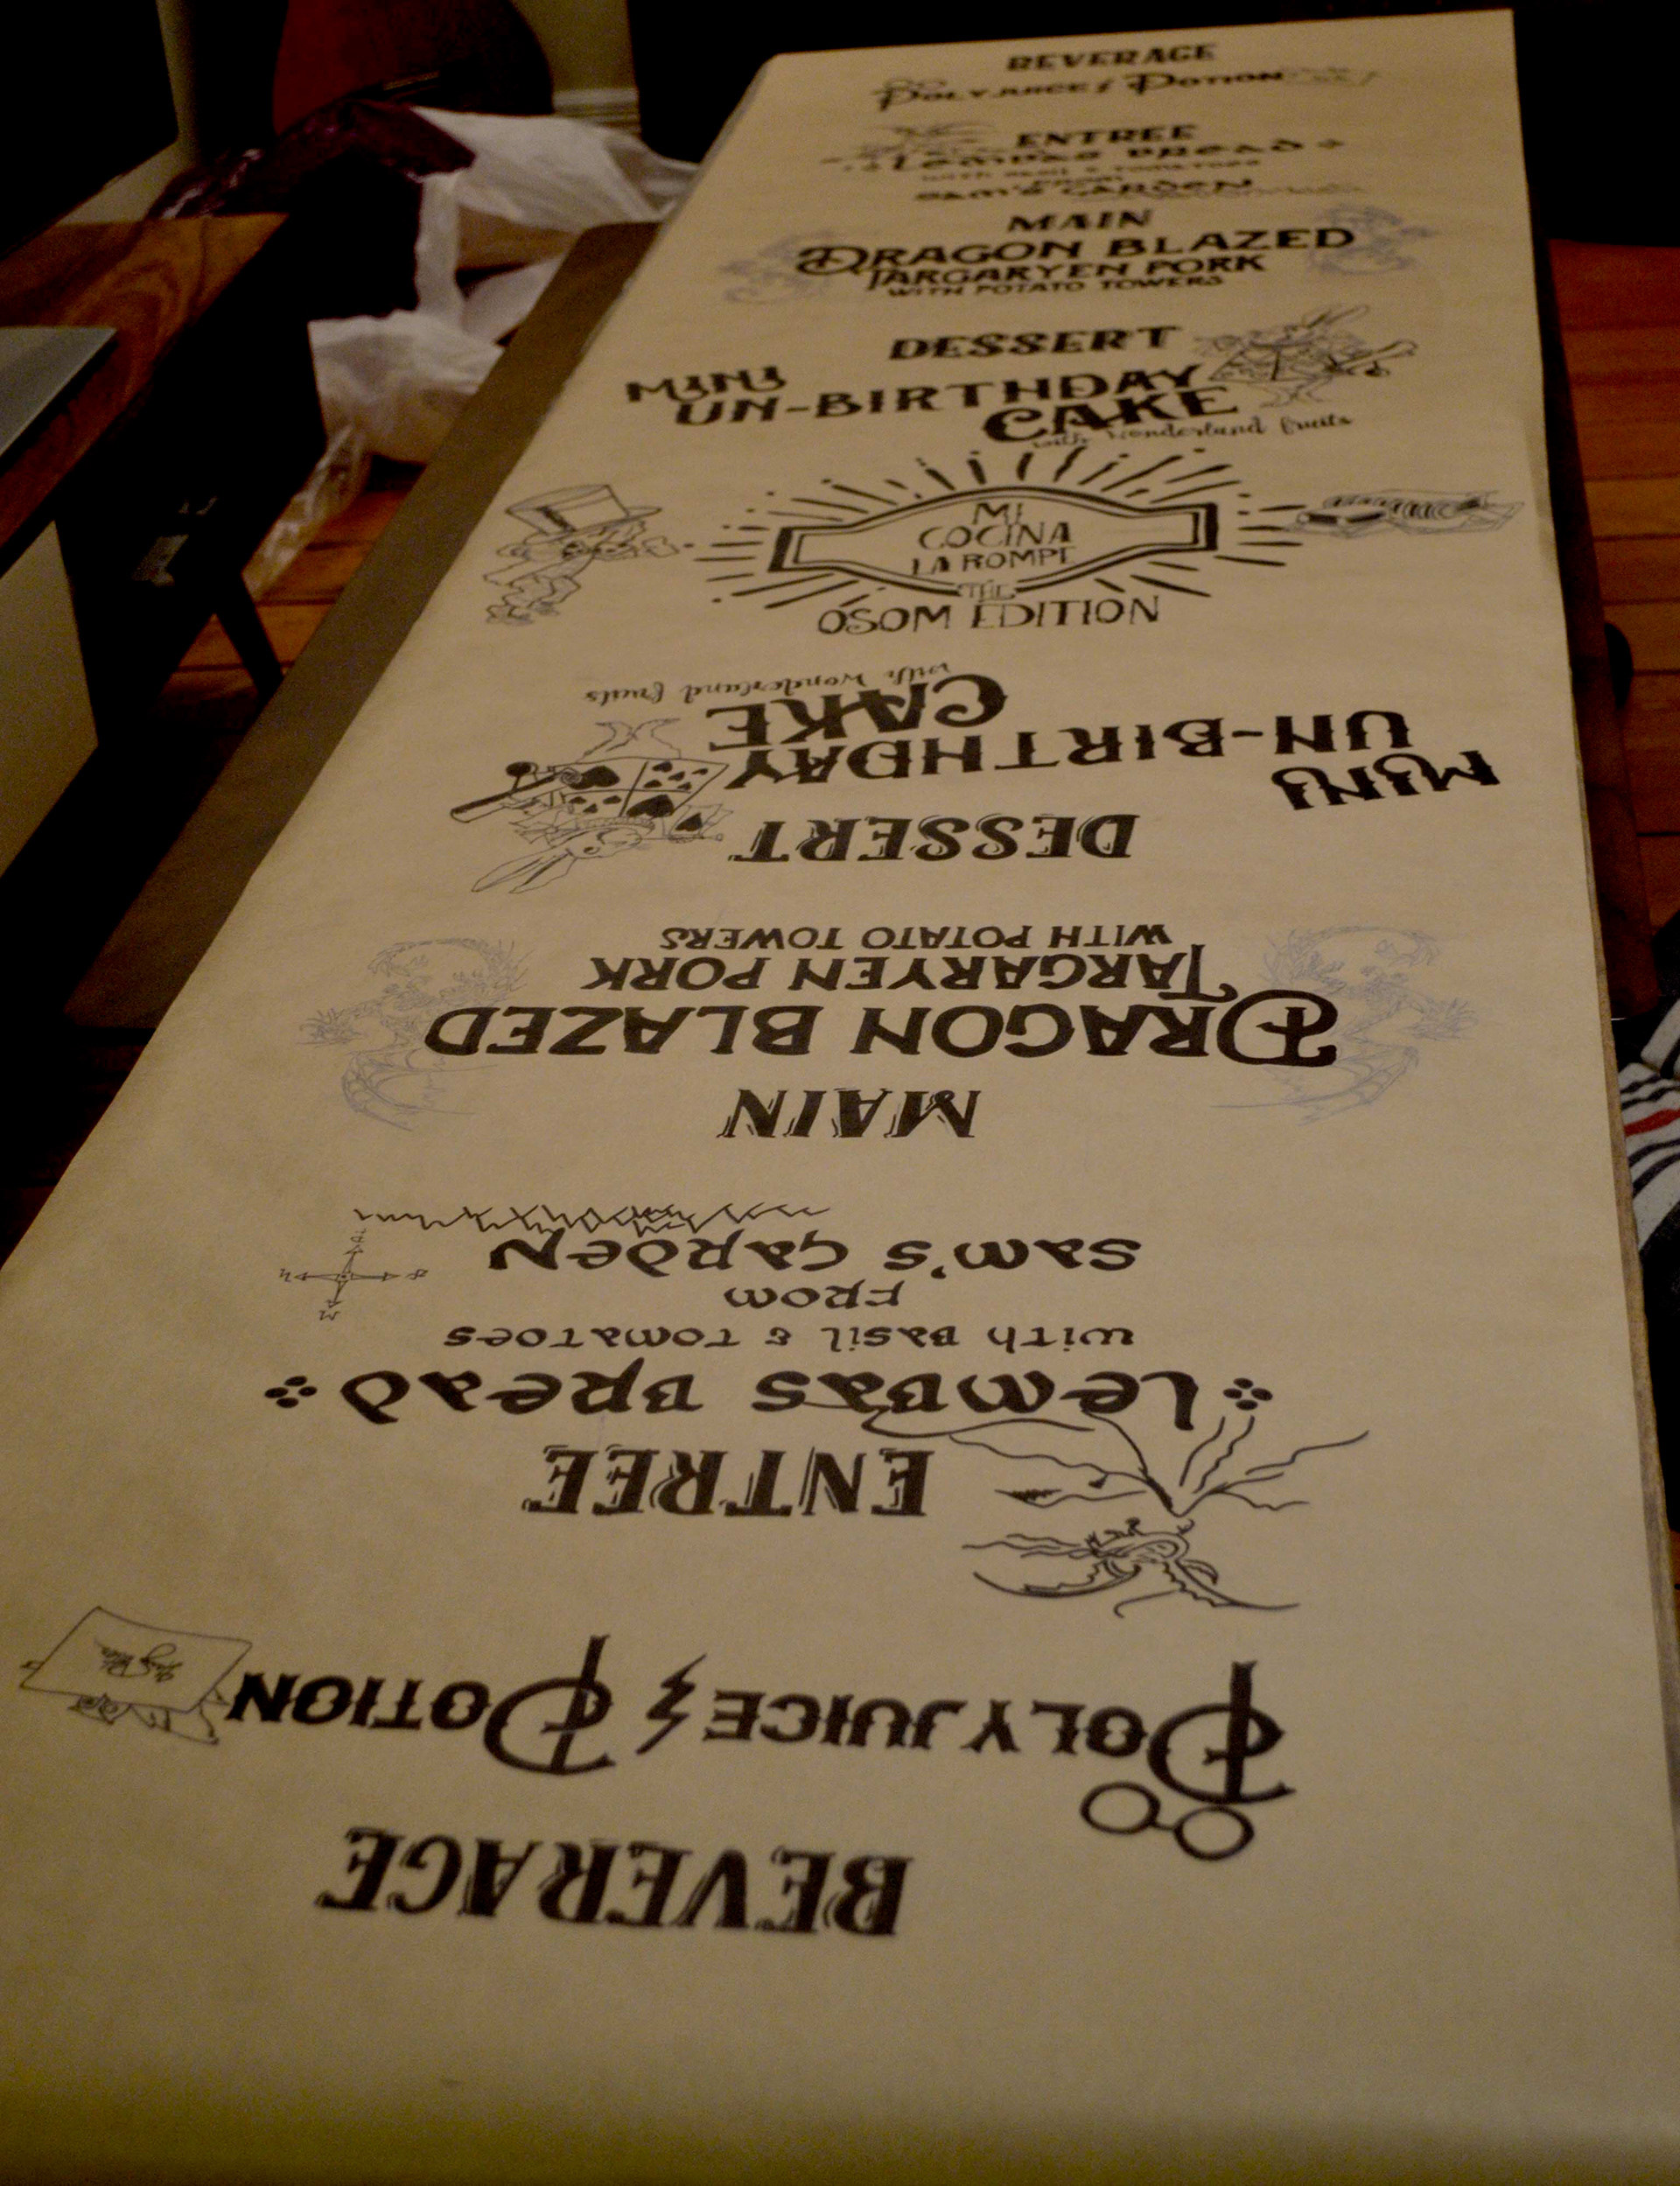 BEVERAGE
POLYJUICE POTION
ENTREE
LEMBAS BREAD
WITH BASIL & TOMATOES
FROM
SAM'S GARDEN
MAIN
DRAGON BLAZED
TARGARYEN PORK
WITH POTATO TOWERS
DESSERT
MINI
UN-BIRTHDAY
CAKE
with wonderland fruits
MI
COCINA
LA ROMPE
THE
OSOM EDITION
BEVERAGE
POLYJUICE POTION
ENTREE
LEMBAS BREAD
WITH BASIL & TOMATOES
FROM
SAM'S GARDEN
MAIN
DRAGON BLAZED
TARGARYEN PORK
WITH POTATO TOWERS
DESSERT
MINI
UN-BIRTHDAY
CAKE
with wonderland fruits